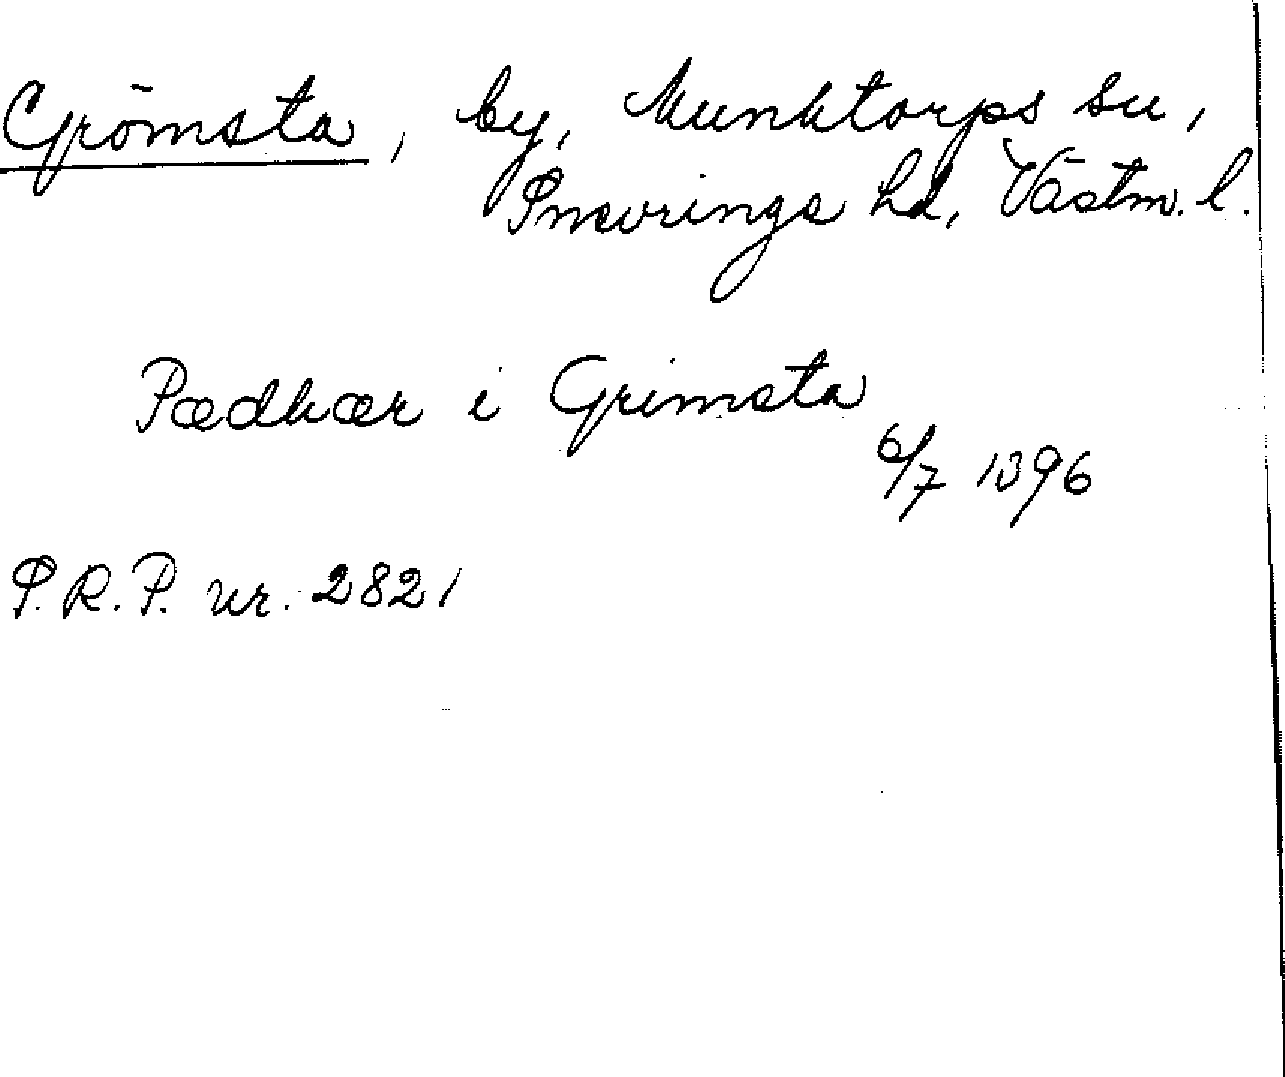 Grömsta, by, Munktorps sn,
Snevringe hd, Västm. l.
Pædhær i Grimsta
6/7 1396
S.R.P. nr. 2821